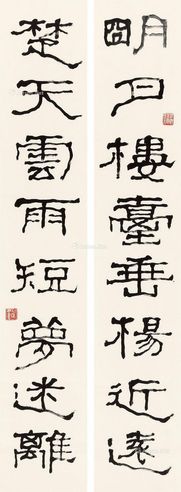 朙月樓臺垂楊近遠
楚天雲雨短夢迷離